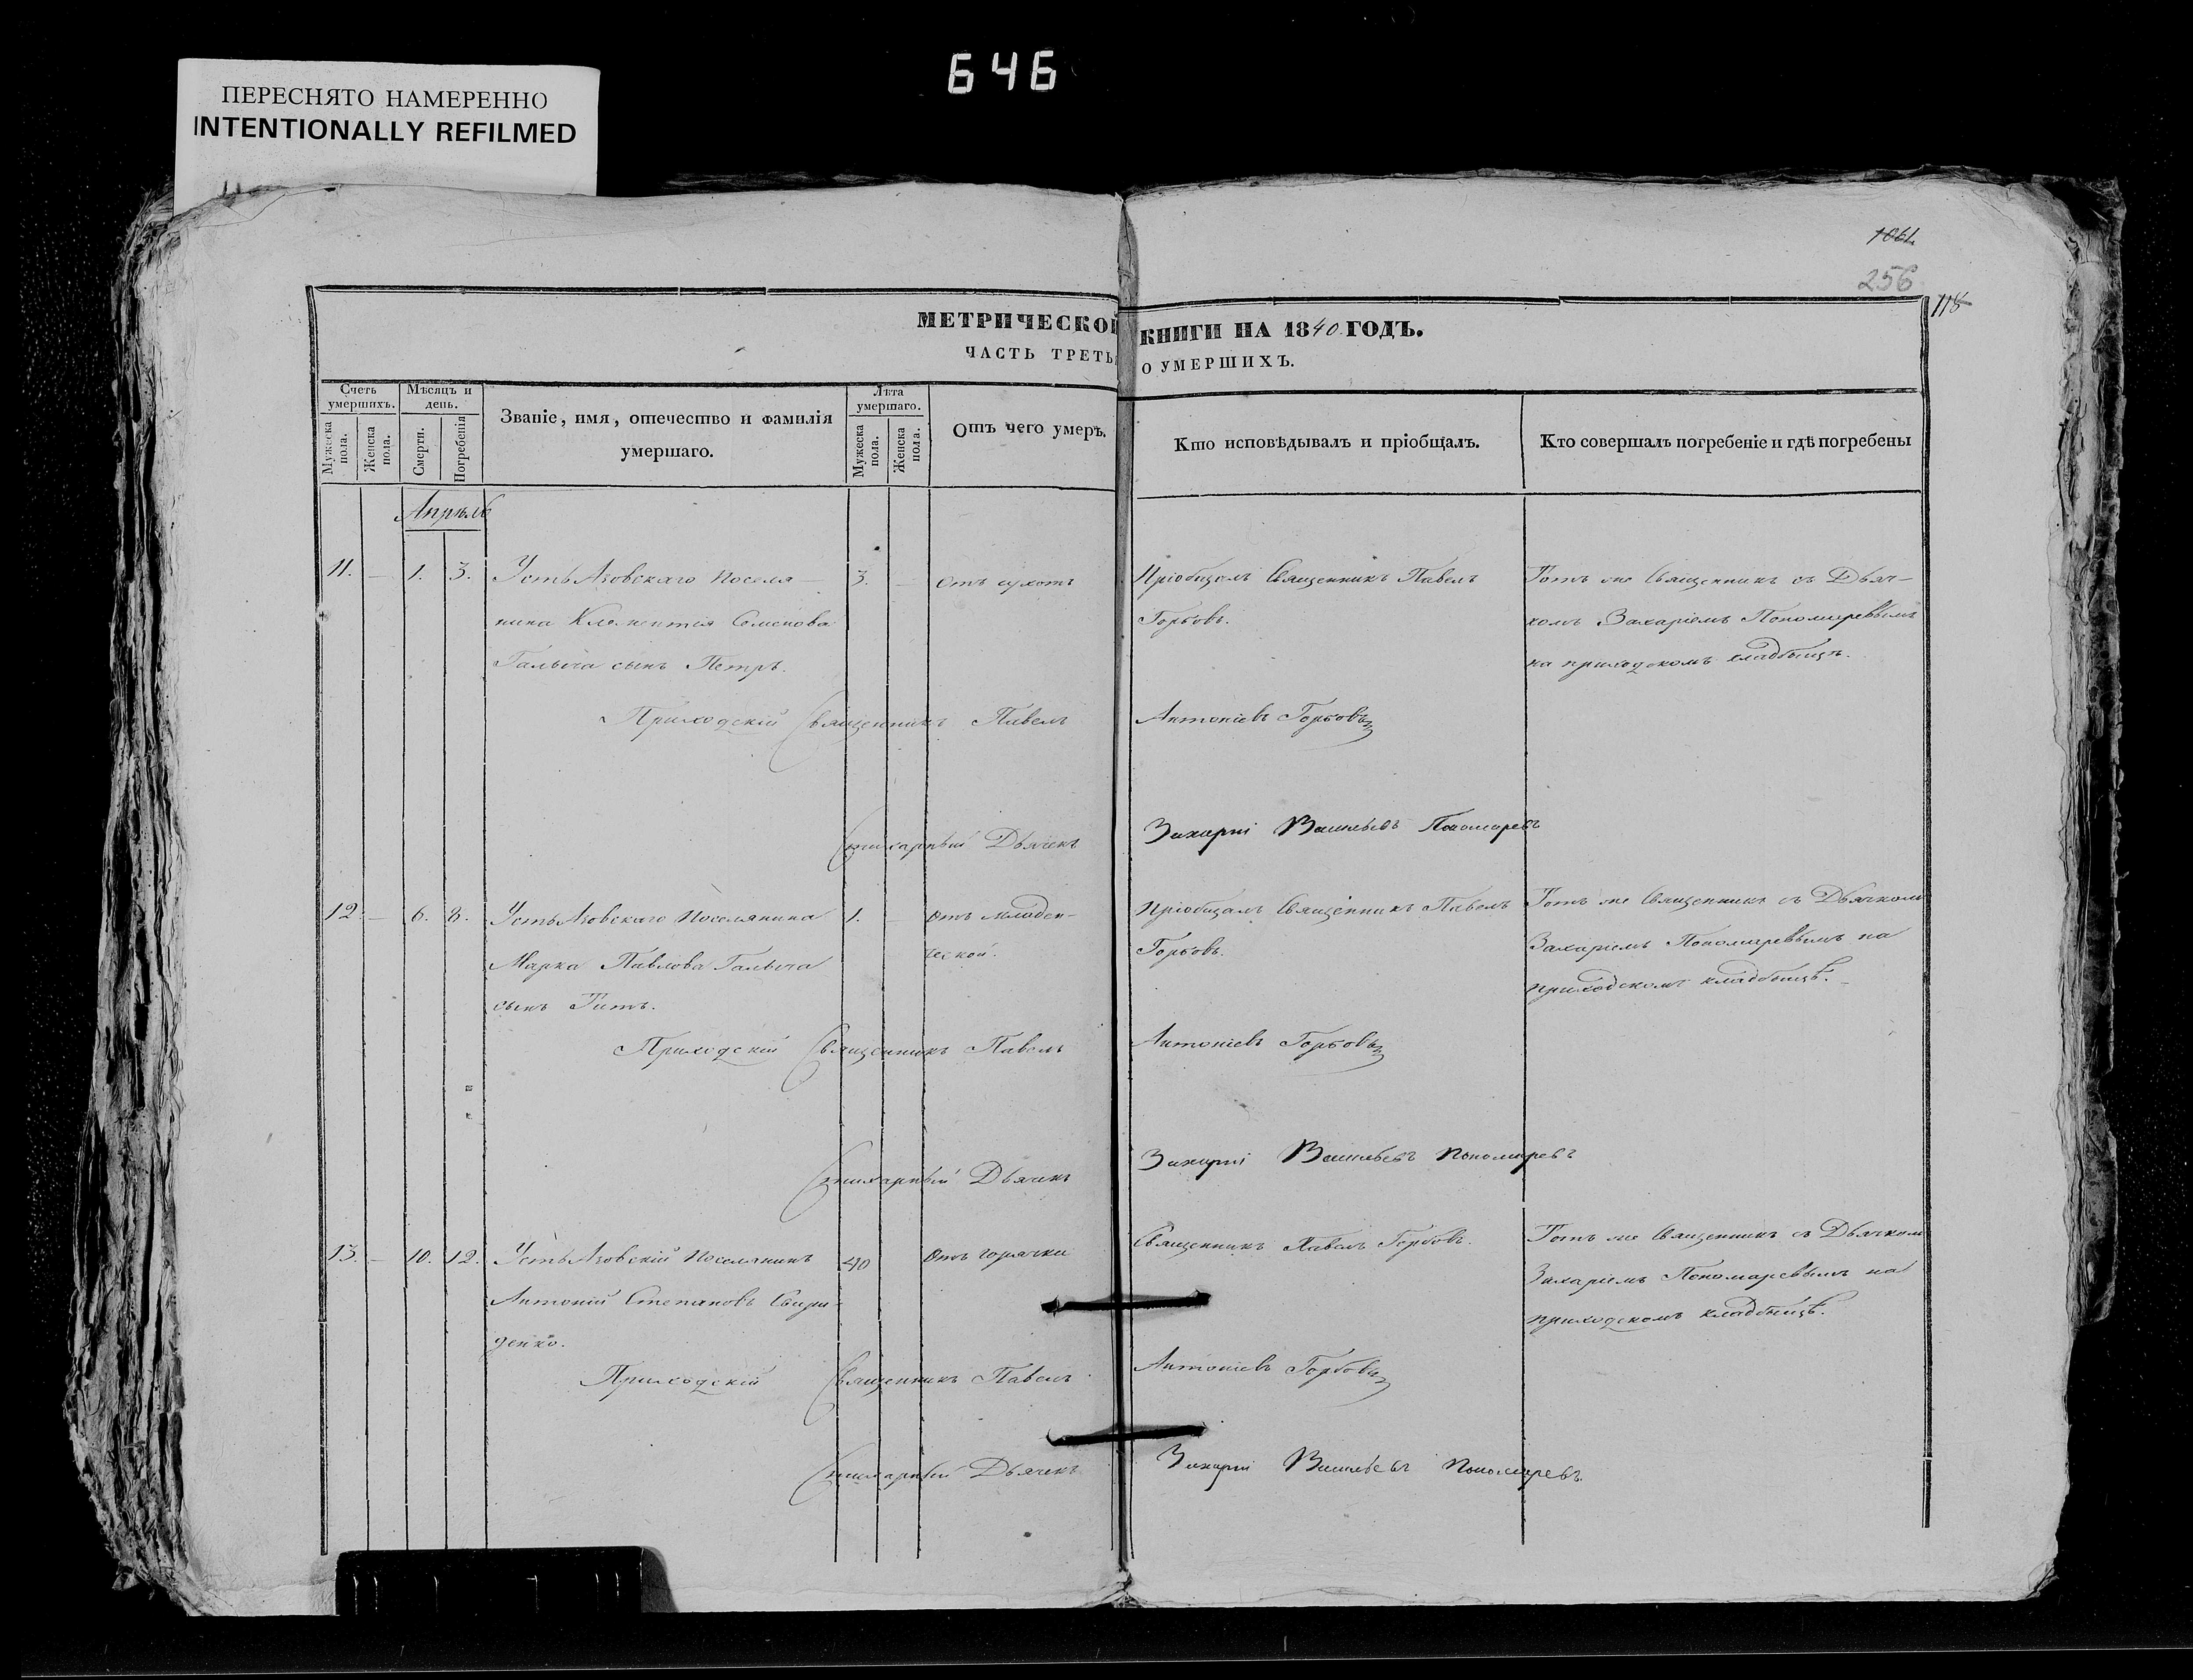 646
ПЕРЕСНЯТО НАМЕРЕННО
INTENTIONALLY REFILMED
1061
256
118
МЕТРИЧЕСКОЙ КНИГИ НА 1840 ГОДЪ.
ЧАСТЬ ТРЕТЬ О УМЕРШИХЪ.
Счетъ умершихъ.
Мужеска пола.
Женска пола.
Мѣсяцъ и день.
Смерти.
Погребенія
Званіе, имя, отечество и фамилія
умершаго.
Лѣта умершаго.
Мужеска пола.
Женска пола.
Отъ чего умеръ.
Кто исповѣдывалъ и пріобщалъ.
Кто совершалъ погребеніе и гдѣ погребены
Апрѣль
11. — 1. 3. Усть Азовскаго Поселя— 3. — отъ сухотъ Пріобщалъ Священникъ Павелъ Тотъ же Священникъ съ Дьяч—
нина Климентія Семенова Горбовъ. комъ Захаріемъ Пономаревымъ
Галыча сынъ Петръ. на приходскомъ кладбищѣ.
Приходскій Священникъ Павелъ Антоніевъ Горбовъ
Стихарный Дьячекъ Захарий Васильевъ Пономаревъ
12 — 6. 8. Усть Азовскаго Поселянина 1. — отъ младен- Пріобщалъ Священникъ Павелъ Тотъ же Священникъ съ Дьячкомъ
Марка Павлова Галыча ческой. Горбовъ. Захаріемъ Пономаревымъ на
сынъ Титъ. приходскомъ кладбищѣ.
Приходскій Священникъ Павелъ Антоніевъ Горбовъ
Стихарный Дьячекъ Захарий Васильевъ Пономаревъ
13. — 10. 12. Усть Азовскій Поселянинъ 40 отъ горячки Священникъ Павелъ Горбовъ. Тотъ же Священникъ съ Дьячкомъ
Антоній Степановъ Свири- Захаріемъ Пономаревымъ на
денко. приходскомъ кладбищѣ.
Приходскій Священникъ Павелъ Антоніевъ Горбовъ
Стихарный Дьячекъ Захарий Васильевъ Пономаревъ.